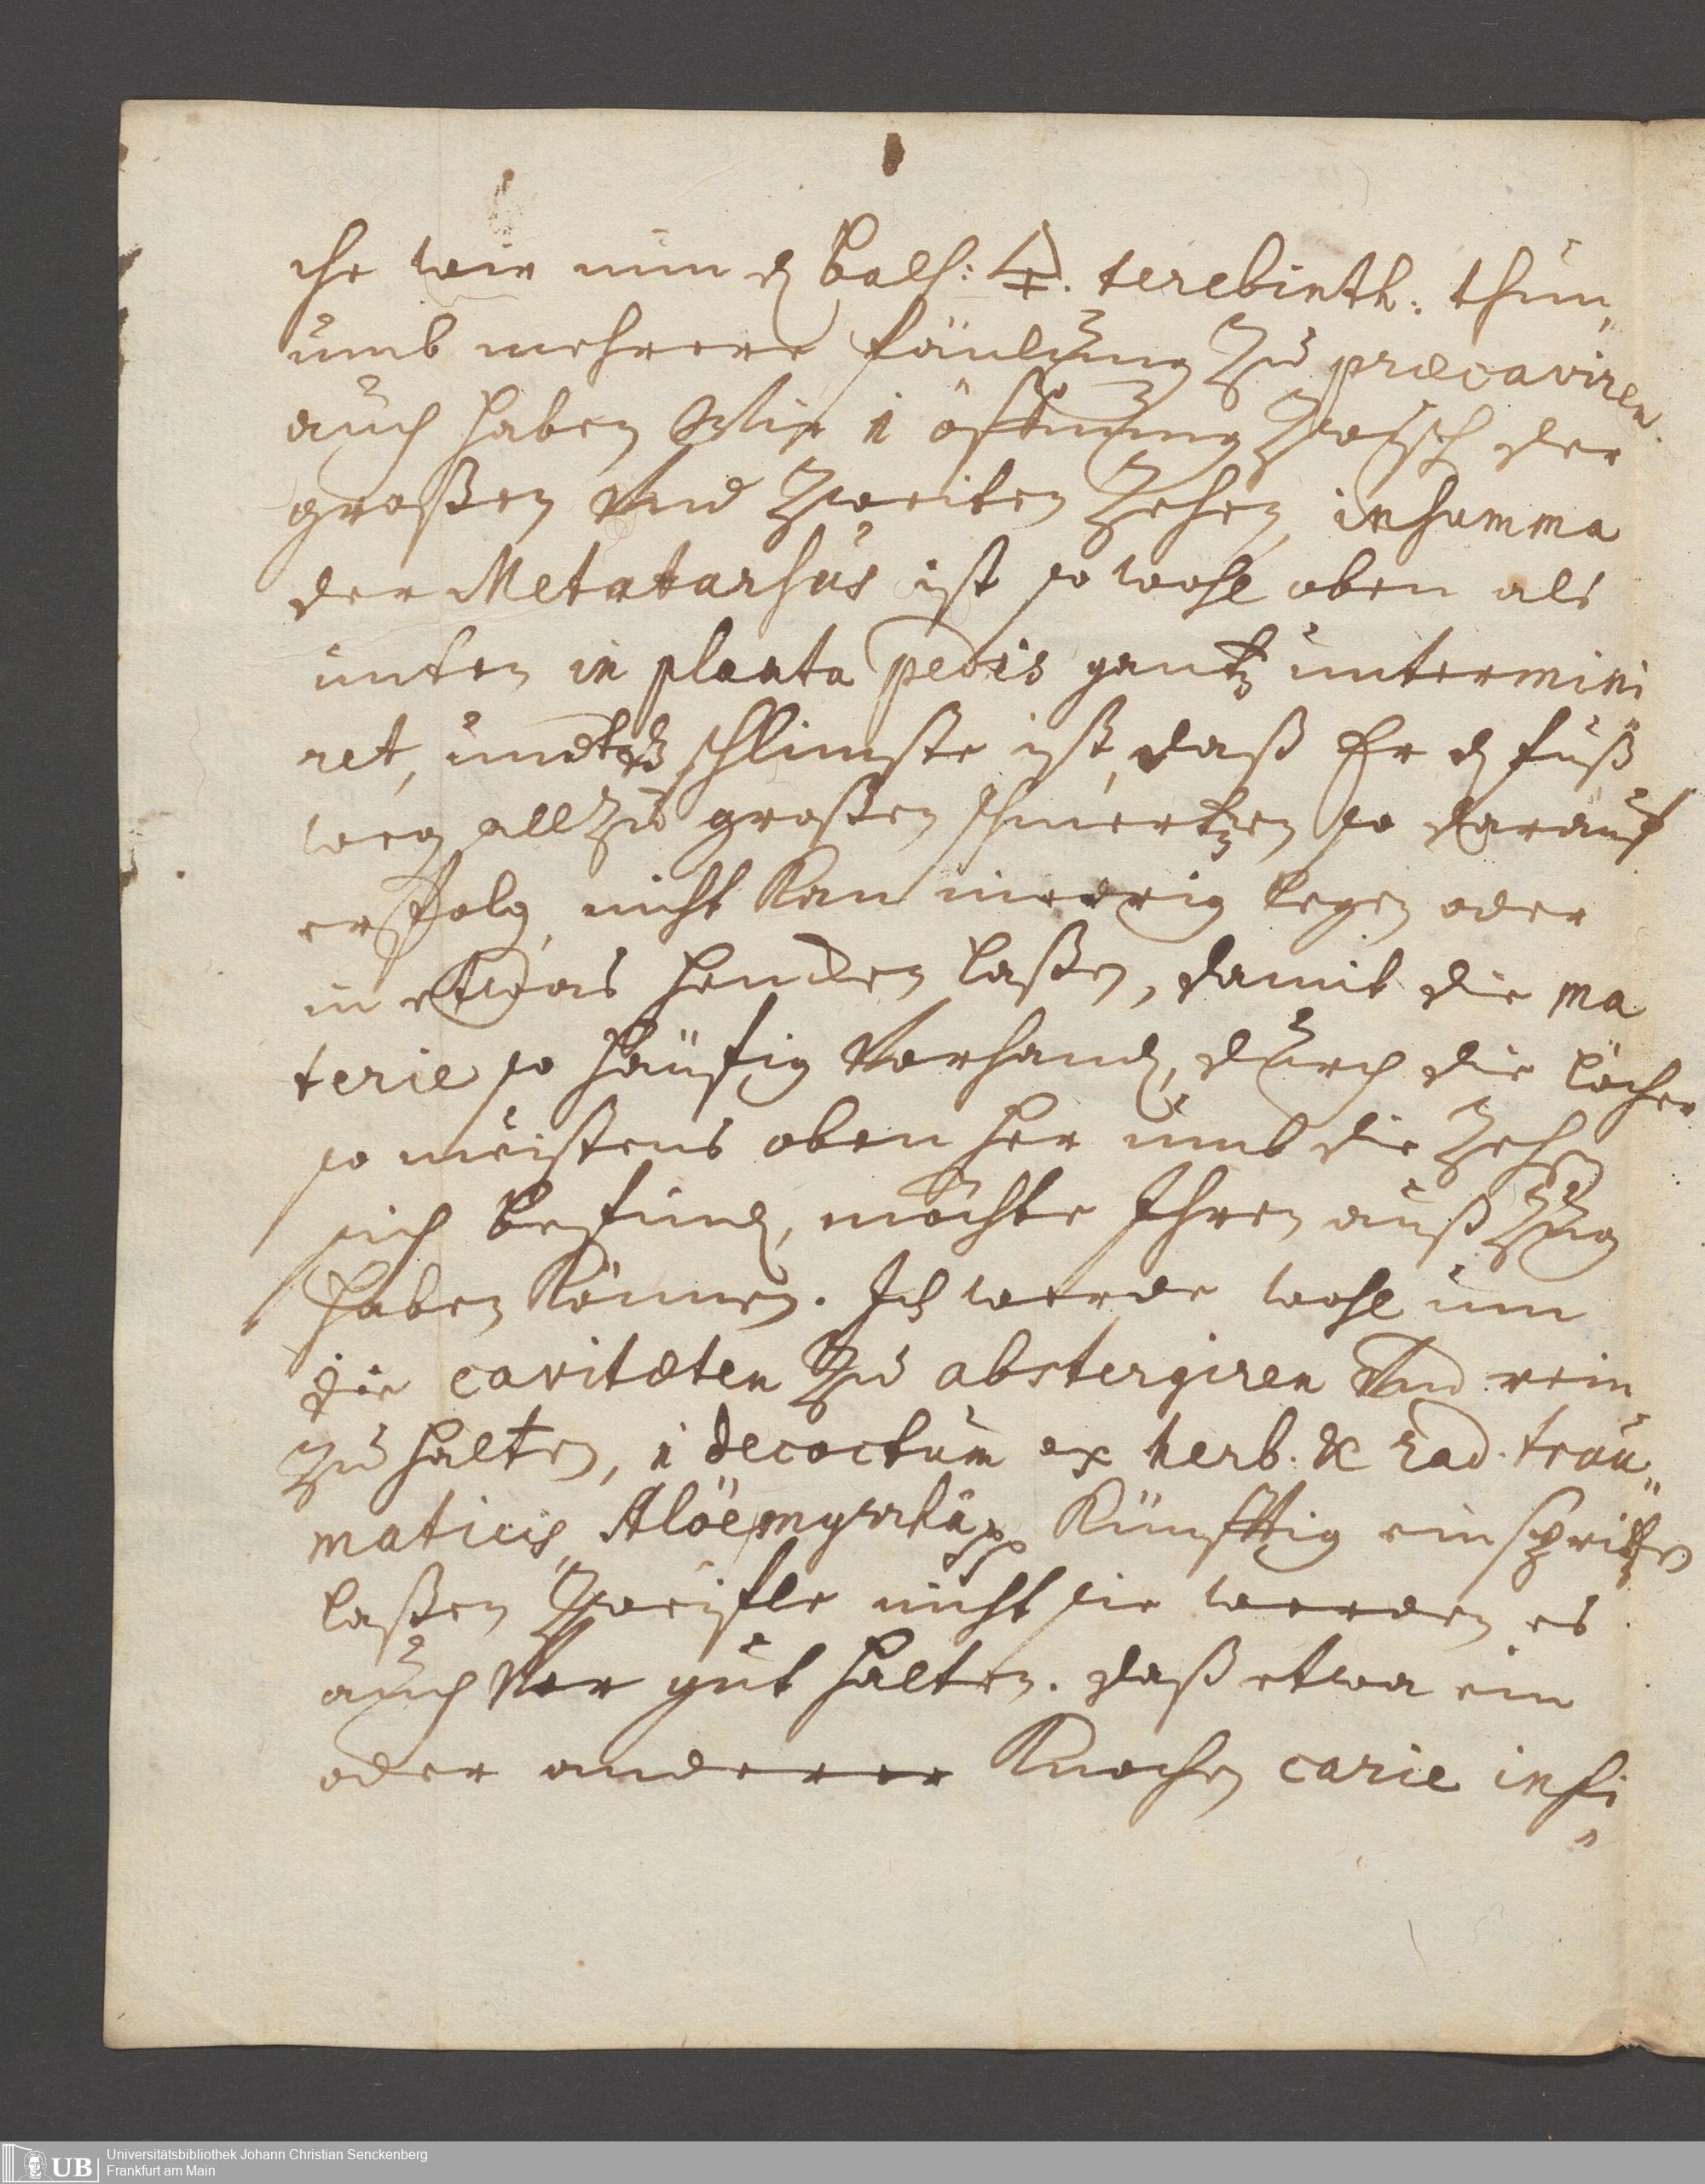 che wir nun d Balß: 🜍. terebinth: thun,
umb mehrere fäulung zu præcaviren.
auch haben Wir 1 öffnung zwisch der
großen Und Zweiten Zehen, in summa
der Metatarsus ist so wohl oben als
unten in planta pedis gantz untermini
ret, und dz schlimste ist, daß Er d fuß
weg all zu großen schmertzen so darauf
erfolg, nicht Kan niedrig legen oder
in etwas hencken laßen, damit die ma
terie so häufig Vorhand, durch die löcher
so meistens oben her umb die Zehen
sich befind, möchte Ihren auß Zug
haben Können. Ich werde wohl um
die cavitæten Zu abstergiren Und rein
zu halten, 1 decoctum ex herb. & rad. trau„
maticis, Alöe, myrrha pp Künfftig einspritzen
laßen Zweifle nicht sie werden es
auch Vor gut halten. daß etwa ein
oder anderer Knochen carie infi„
Universitätsbibliothek Johann Christian Senckenberg
UB Frankfurt am Main